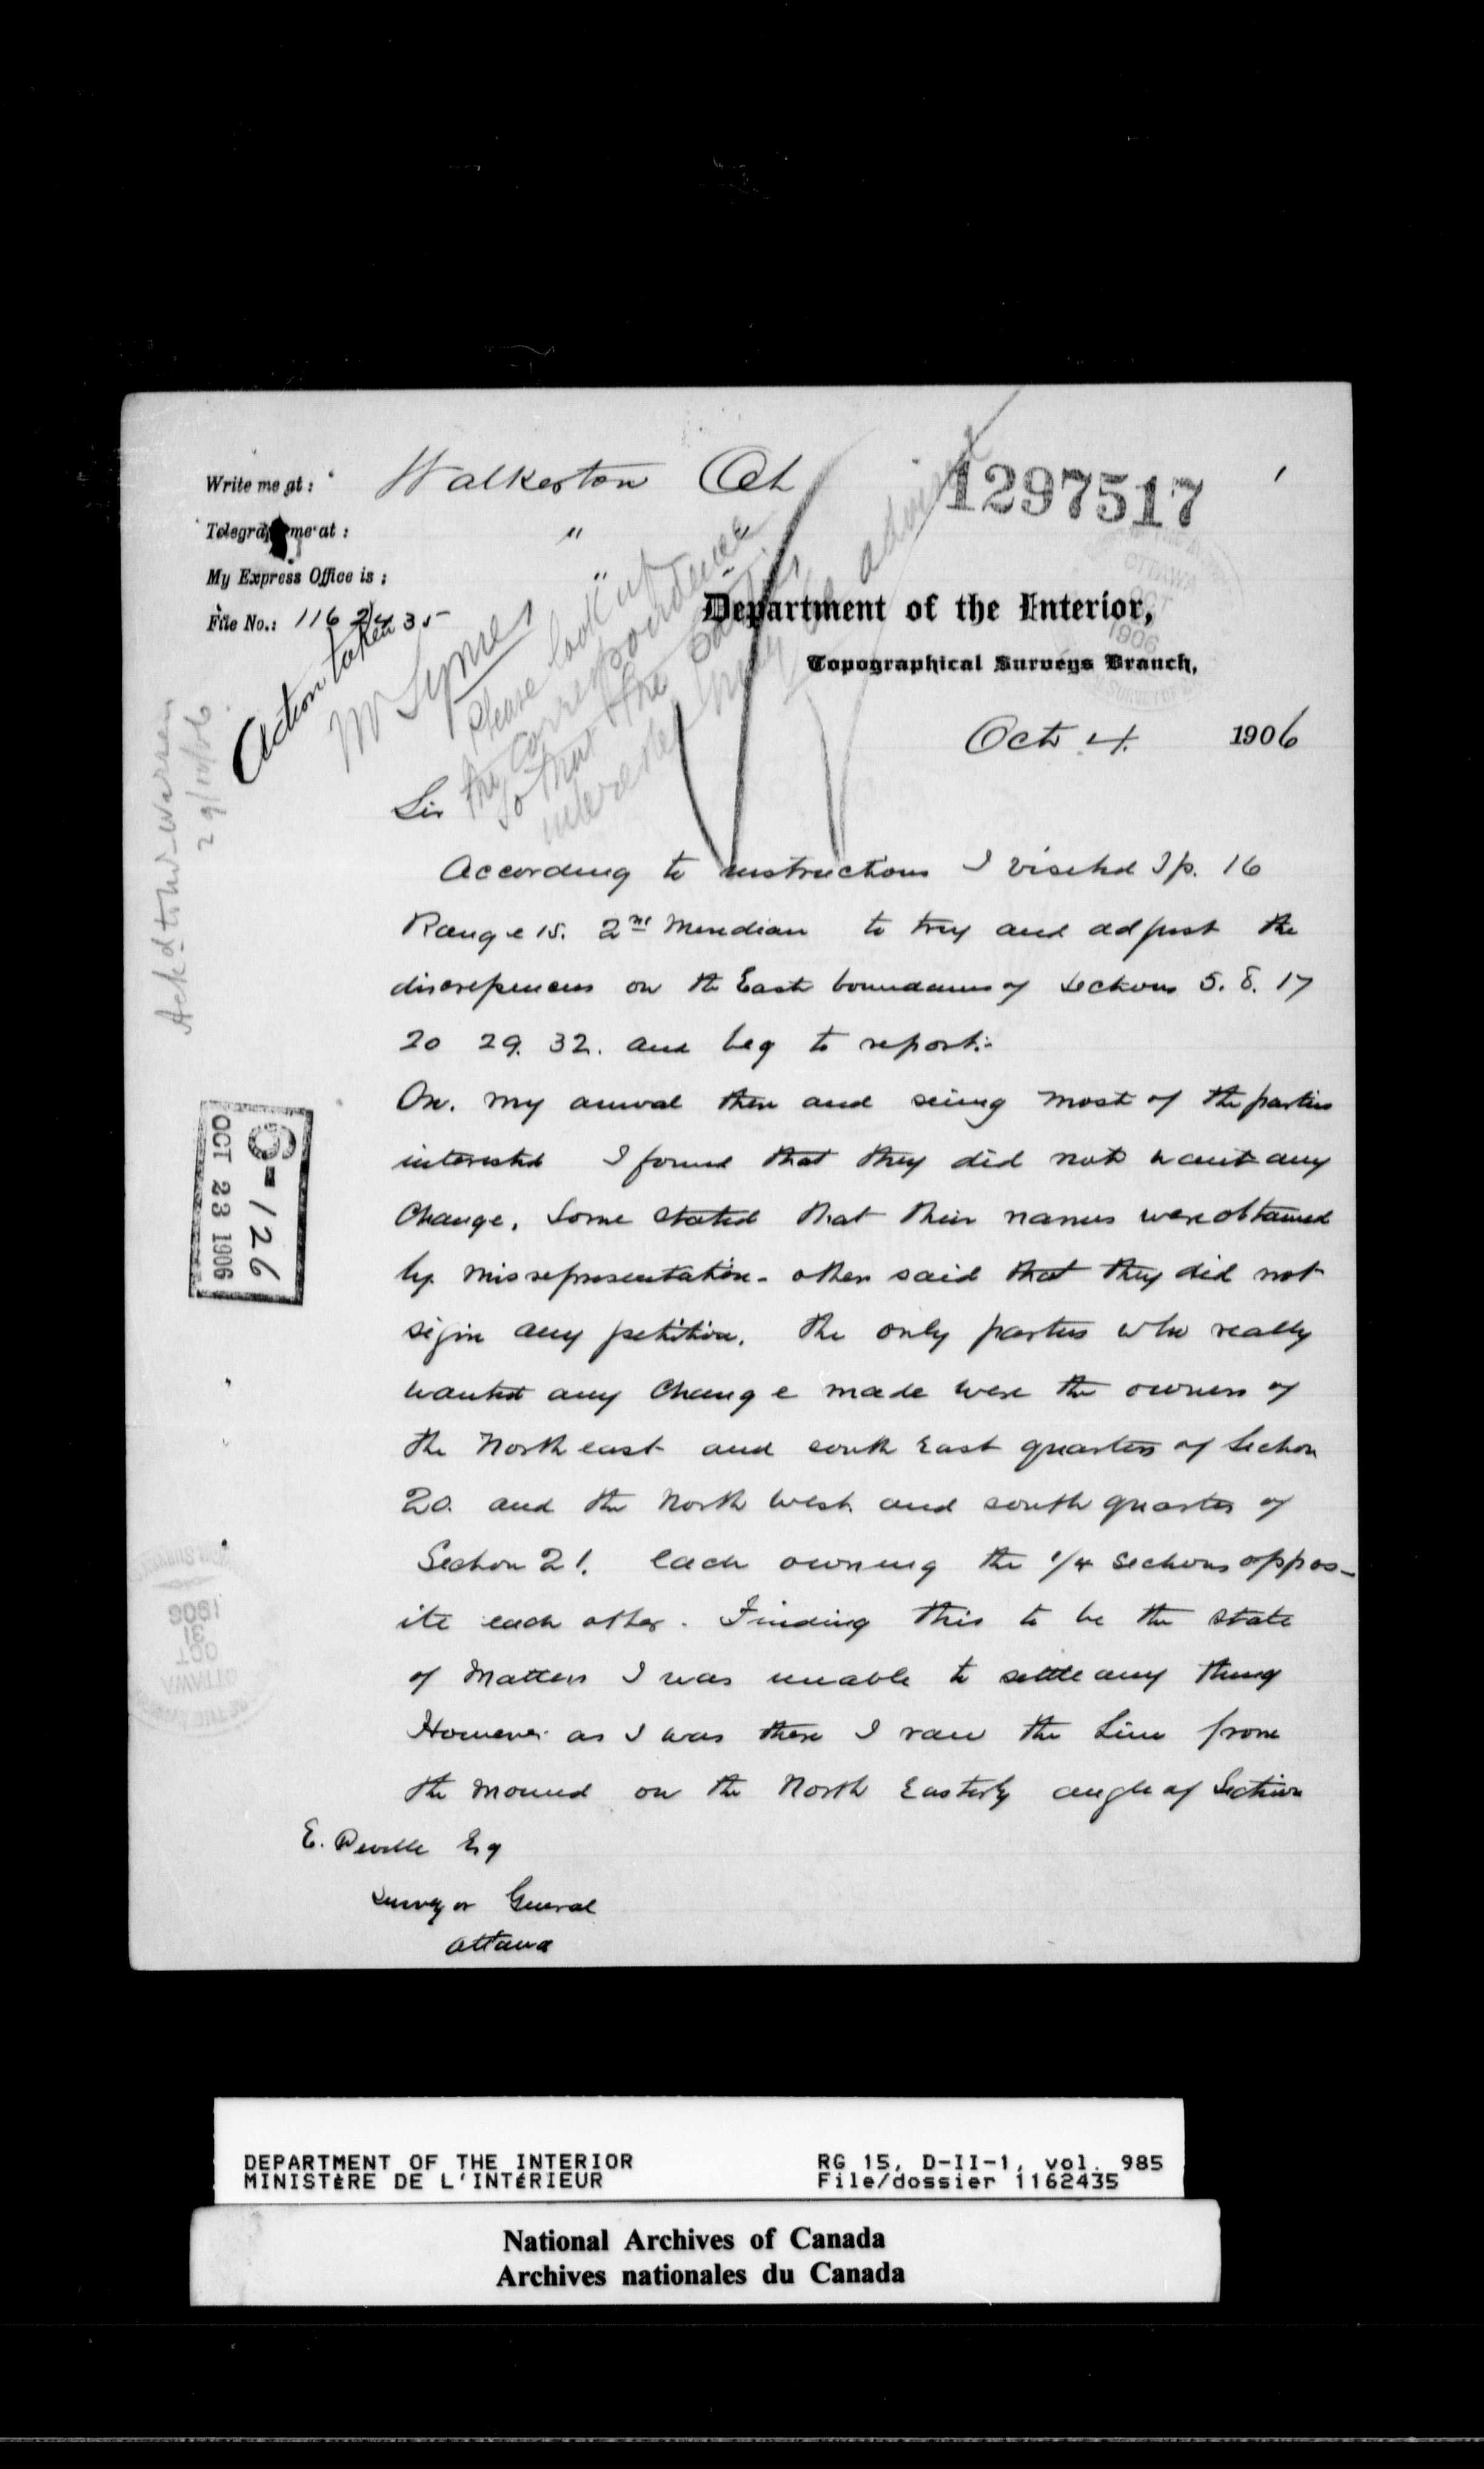 Write me at: Walkerton Ont
1297517
Telegraph me at: "
My Express Office is: "
File No.: 1162435
Action taken
Mr Symes
Please look up
the correspondence
so that the parties
interested may be advised
Department of the Interior,
Topographical Surveys Branch,
Oct 4. 1906
Ack'd
29/10/06
Sir
According to instructions I visited Tp. 16
Range 15. 2nd Meridian to try and adjust the
discrepencies on the East boundaries of Sections 5. 8. 17
20 29. 32. and beg to report:-
On. my arrival there and seeing most of the parties
interested I found that they did not want any
Change. Some stated that their names were obtained
by misrepresentation - others said that they did not
sign any petition. The only parties who really
wanted any Change made were the owners of
the North east and south East quarters of Section
20. and the North West. and south quarter of
Section 21. Each owning the 1/4 sections oppos-
ite each other. Finding this to be the state
of Matters I was unable to settle any thing
However as I was there I ran the Line from
the Mound on the North Easterly angle of Section
E. Deville Esq
Surveyor General
Ottawa
G-126
OCT 23 1906
OTTAWA
OCT
31
1906
DEPARTMENT OF THE INTERIOR
MINISTÈRE DE L'INTÉRIEUR
RG 15, D-II-1, vol. 985
File/dossier 1162435
National Archives of Canada
Archives nationales du Canada